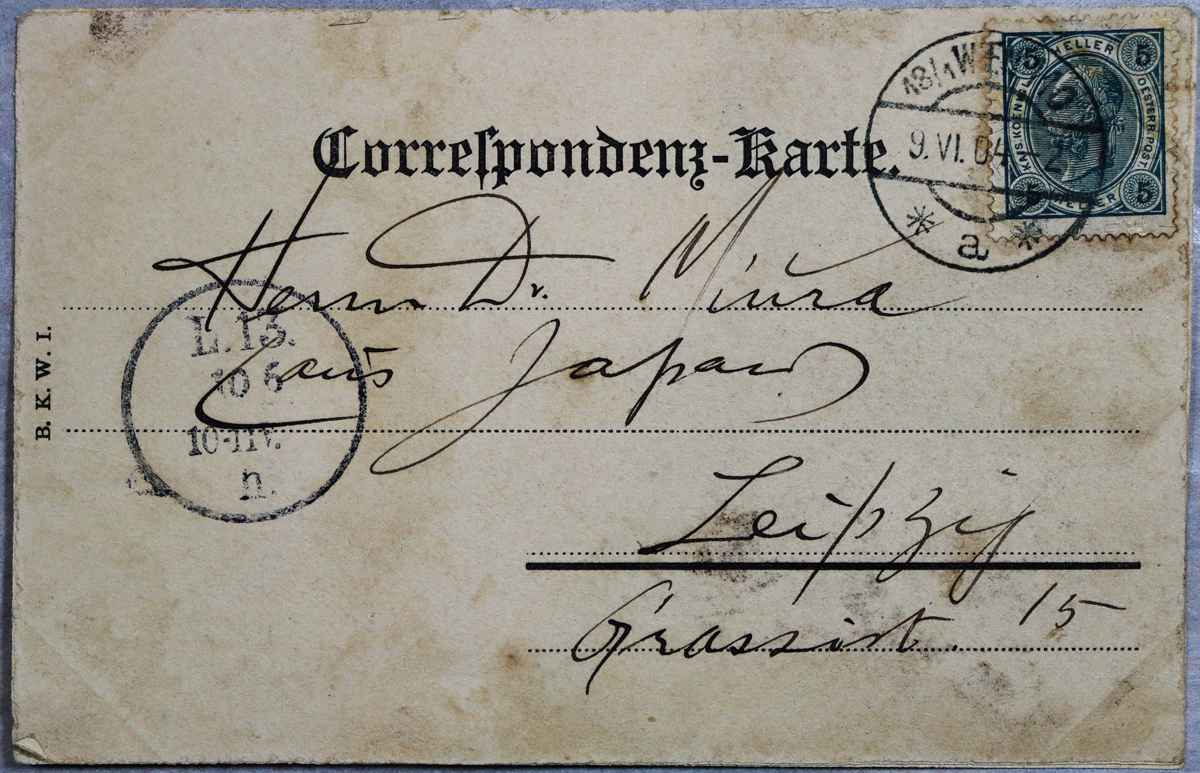 Correspondenz-Karte.
18/1 WIEN
9.VI.04
* a *
5 HELLER 5
KAIS. KOENIGL. OESTERR. POST
5 HELLER 5
Herrn Dr. Miura
aus Japan
Leipzig
Grassist. 15
L.13.
10 6
10-11V.
n.
B. K. W. I.